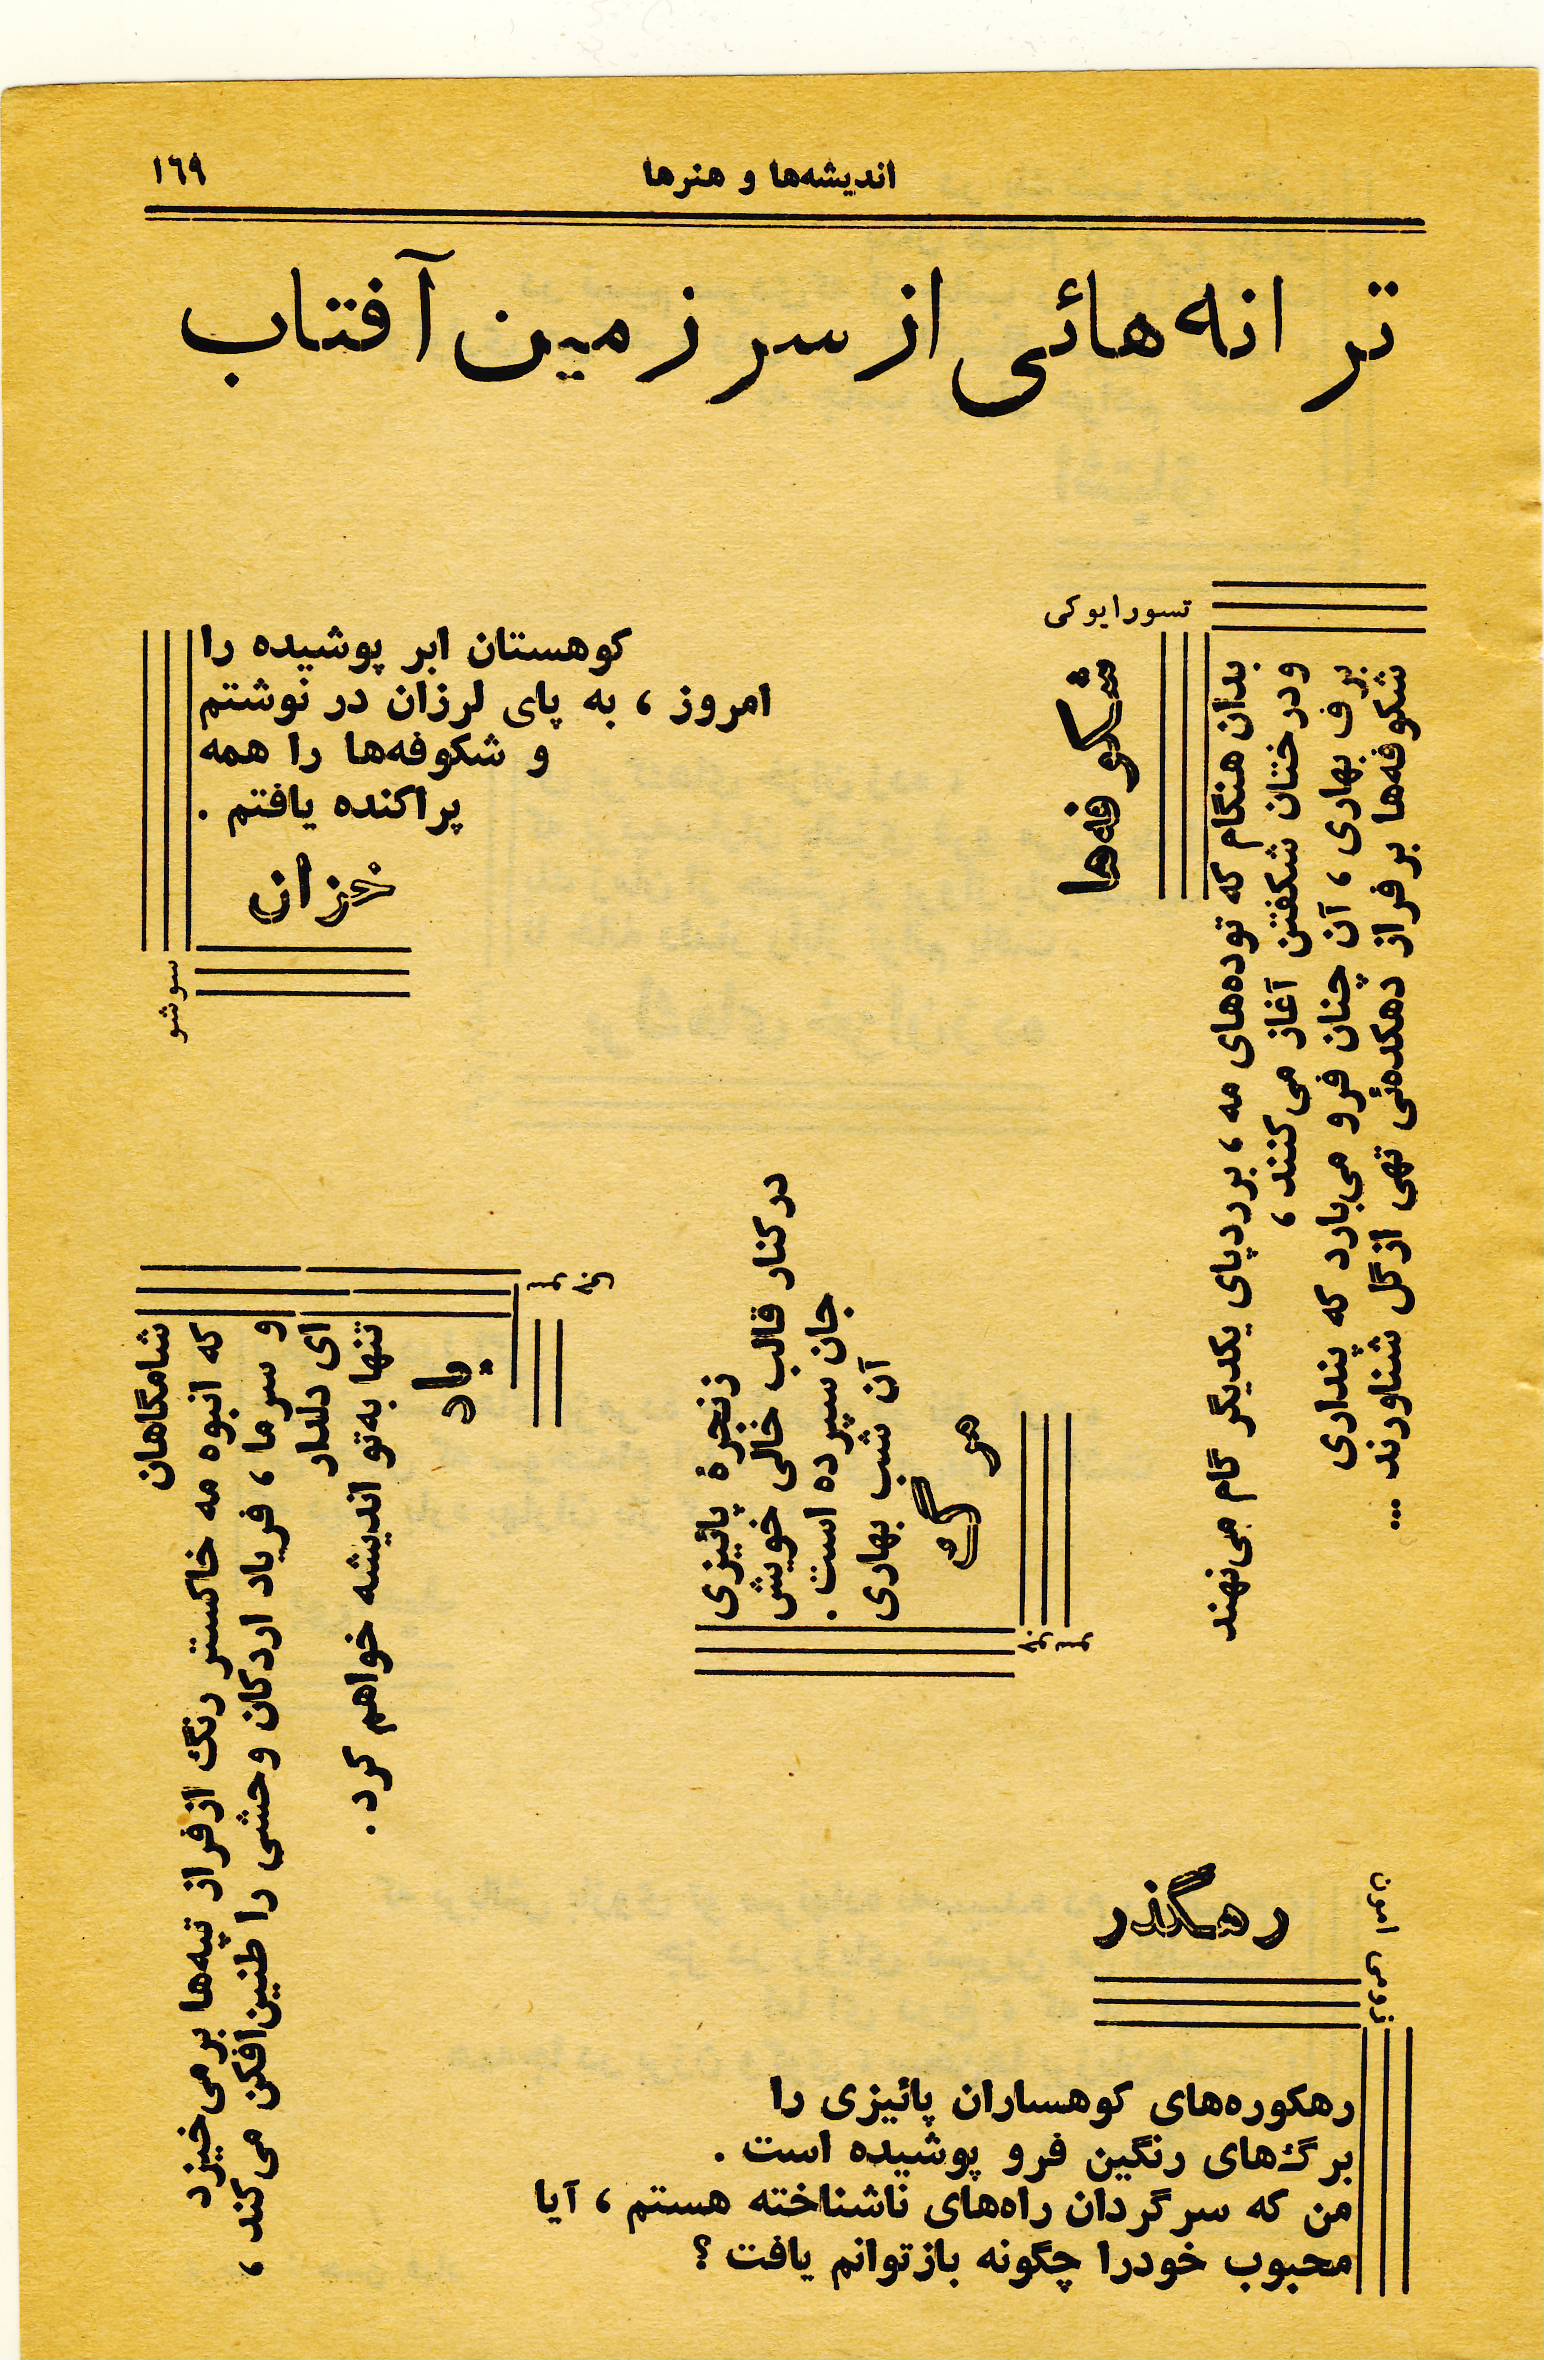 اندیشه‌ها و هنرها
١٦٩
ترانه‌هائی از سرزمین آفتاب
تسورایوکی
شکوفه‌ها
بدان هنگام که توده‌های مه، بر ردپای یکدیگر گام می‌نهند
و درختان شکفتن آغاز می‌کنند،
برف بهاری، آن چنان فرو می‌بارد که پنداری
شکوفه‌ها بر فراز دهکده‌ئی تهی از گل شناورند ...
کوهستان ابر پوشیده را
امروز، به پای لرزان در نوشتم
و شکوفه‌ها را همه
پراکنده یافتم.
خزان
سوشو
مرگ
زنجرهٔ پائیزی
در کنار قالب خالی خویش
جان سپرده است.
آن شب بهاری
یاد
شامگاهان
که انبوه مه خاکستر رنگ از فراز تپه‌ها بر می‌خیزد
و سرما، فریاد اردکان وحشی را طنین‌افکن می‌کند،
ای دلدار
تنها به تو اندیشه خواهم کرد.
رهگذر
رهکوره‌های کوهساران پائیزی را
برگ‌های رنگین فرو پوشیده است.
من که سرگردان راه‌های ناشناخته هستم، آیا
محبوب خودرا چگونه بازتوانم یافت؟